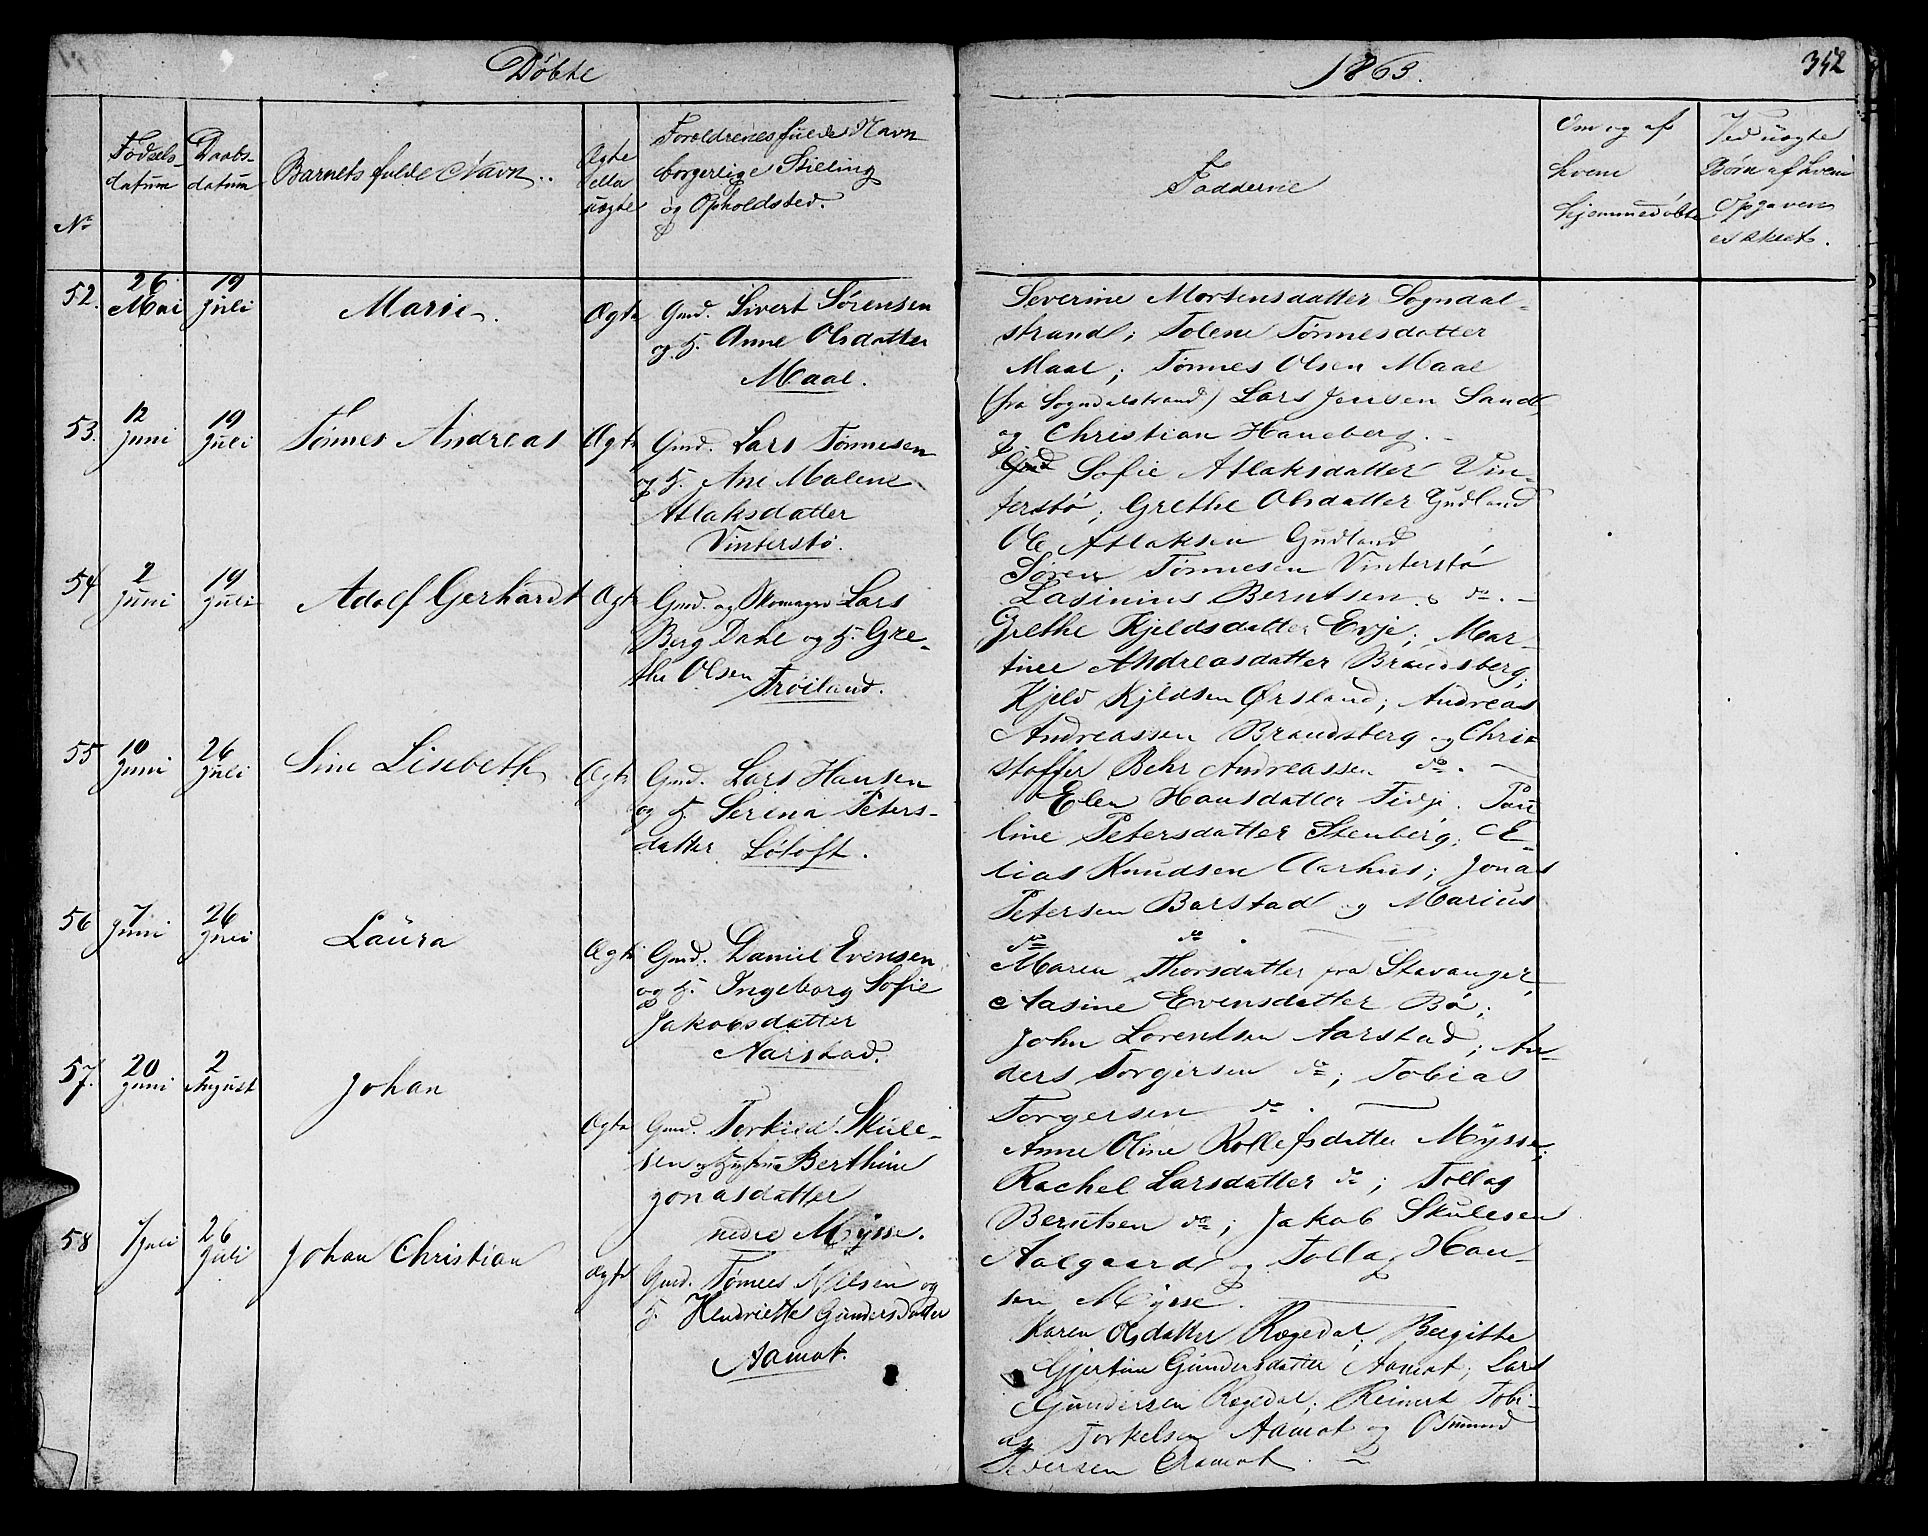 Døbte
1863.
352
No
Fødsels-
datum
Daabs-
datum
Barnets fulde Navn.
Ægte
eller
uægte
Forældrenes fulde Navn
borgerlige Stilling
og Opholdsted.
Fadderne
Om og af
hvem
hjemmedøbte
Ved uægte
Børn af hvem
Opgaven
er skeet.
52.
26
Mai
19
Juli
Marie
Ægte
Gmd. Sivert Sørensen
og H. Anne Olsdatter
Maal.
Severine Mortensdatter Sogndal-
strand; Tolene Tønnesdatter
Maal; Tønnes Olsen Maal
(fra Sogndalstrand) Lars Jensen Sand
og Christian Haneberg.
53.
12
Juni
19
Juli
Tønnes Andreas
Ægte
Gmd. Lars Tønnesen
og H. Ane Malene
Atlaksdatter
Vinterstø.
Sofie Atlaksdatter Vin-
terstø; Grethe Olsdatter Gudland
Ole Atlaksen Gudland
Søren Tønnesen Vinterstø
Lasinius Berntsen do.
54
2
Juni
19
Juli
Adolf Gerhardt
Ægte
Gmd. og Skomager Lars
Berg Dahl og H. Gre-
the Olsen Frøiland.
Grethe Kjeldsdatter Evje; Mar-
tine Andreasdatter Brandsberg;
Kjeld Kjeldsen Ørsland; Andreas
Andreassen Brandsberg og Chri-
stoffer Behr Andreassen do.
55
10
Juni
26
Juli
Sine Lisebeth
Ægte
Gmd. Lars Hansen
og H. Serina Peters-
datter Løtoft.
Elen Hansdatter Tivji. Pau
line Petersdatter Stenberg; E-
lias Knudsen Aarhus; Jonas
Petersen Barstad og Marius
do do.
56
7
Juni
26
Juli
Laura
Ægte
Gmd. Daniel Evensen
og H. Ingeborg Sofie
Jakobsdatter
Aarstad.
Maren Thorsdatter fra Stavanger,
Aasine Evensdatter Bø;
John Lorentsen Aarstad; An-
ders Torgersen do; Tobias
Torgersen do.
57.
20
Juni
2
August
Johan
Ægte
Gmd. Torkild Skule-
sen og Hustru Berthine
Jonasdatter
nedre Mysse.
Anne Oline Rollefsdatter Mysse;
Rachel Larsdatter do; Tollag
Berntsen do; Jakob Skulesen
Aalgaard og Tollag Han-
sen Mysse.
58
7 Juli
26
Juli
Johan Christian
Ægte
Gmd. Tønnes Nilsen og
H. Henriette Gundersdatter
Aamot.
Karen Olsdatter Rægedal; Bergitte
Gjertine Gundersdatter Aamot; Lars
Gundersen Rægedal; Reinert Tobi-
as Torkelsen Aamot og Osmund
Sivertsen Aamot.